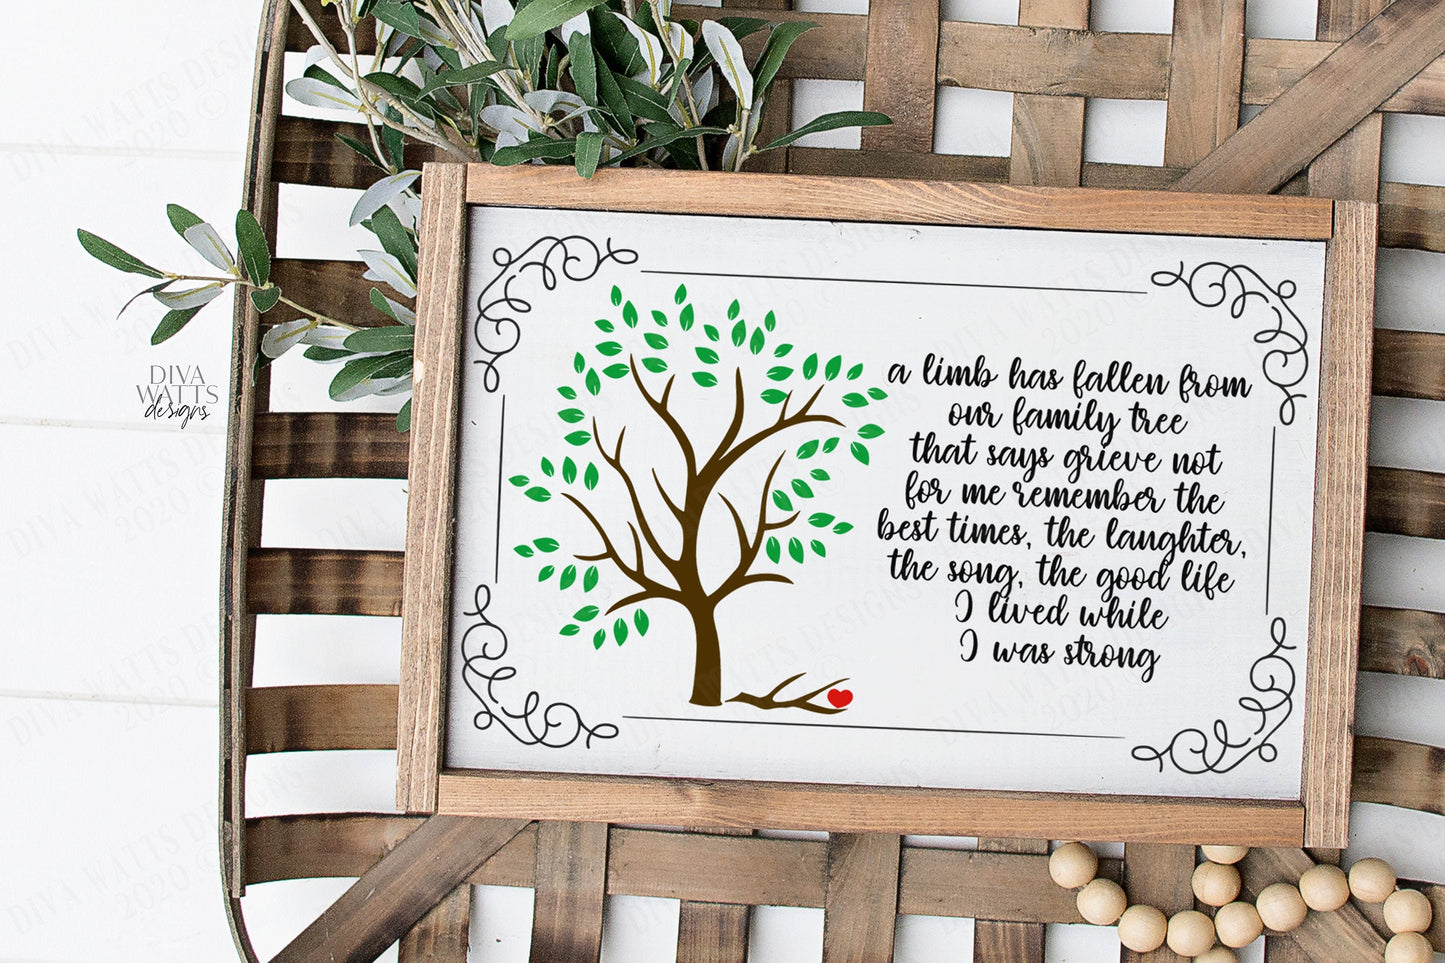 DIVA
WATTS
designs
a limb has fallen from
our family tree
that says grieve not
for me remember the
best times, the laughter,
the song, the good life
I lived while
I was strong
DIVA WATTS DESIGNS
2020 ©